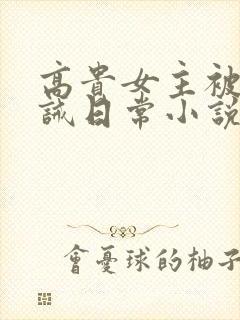 高貴女主被
誡日常小説
會憂球的柚子